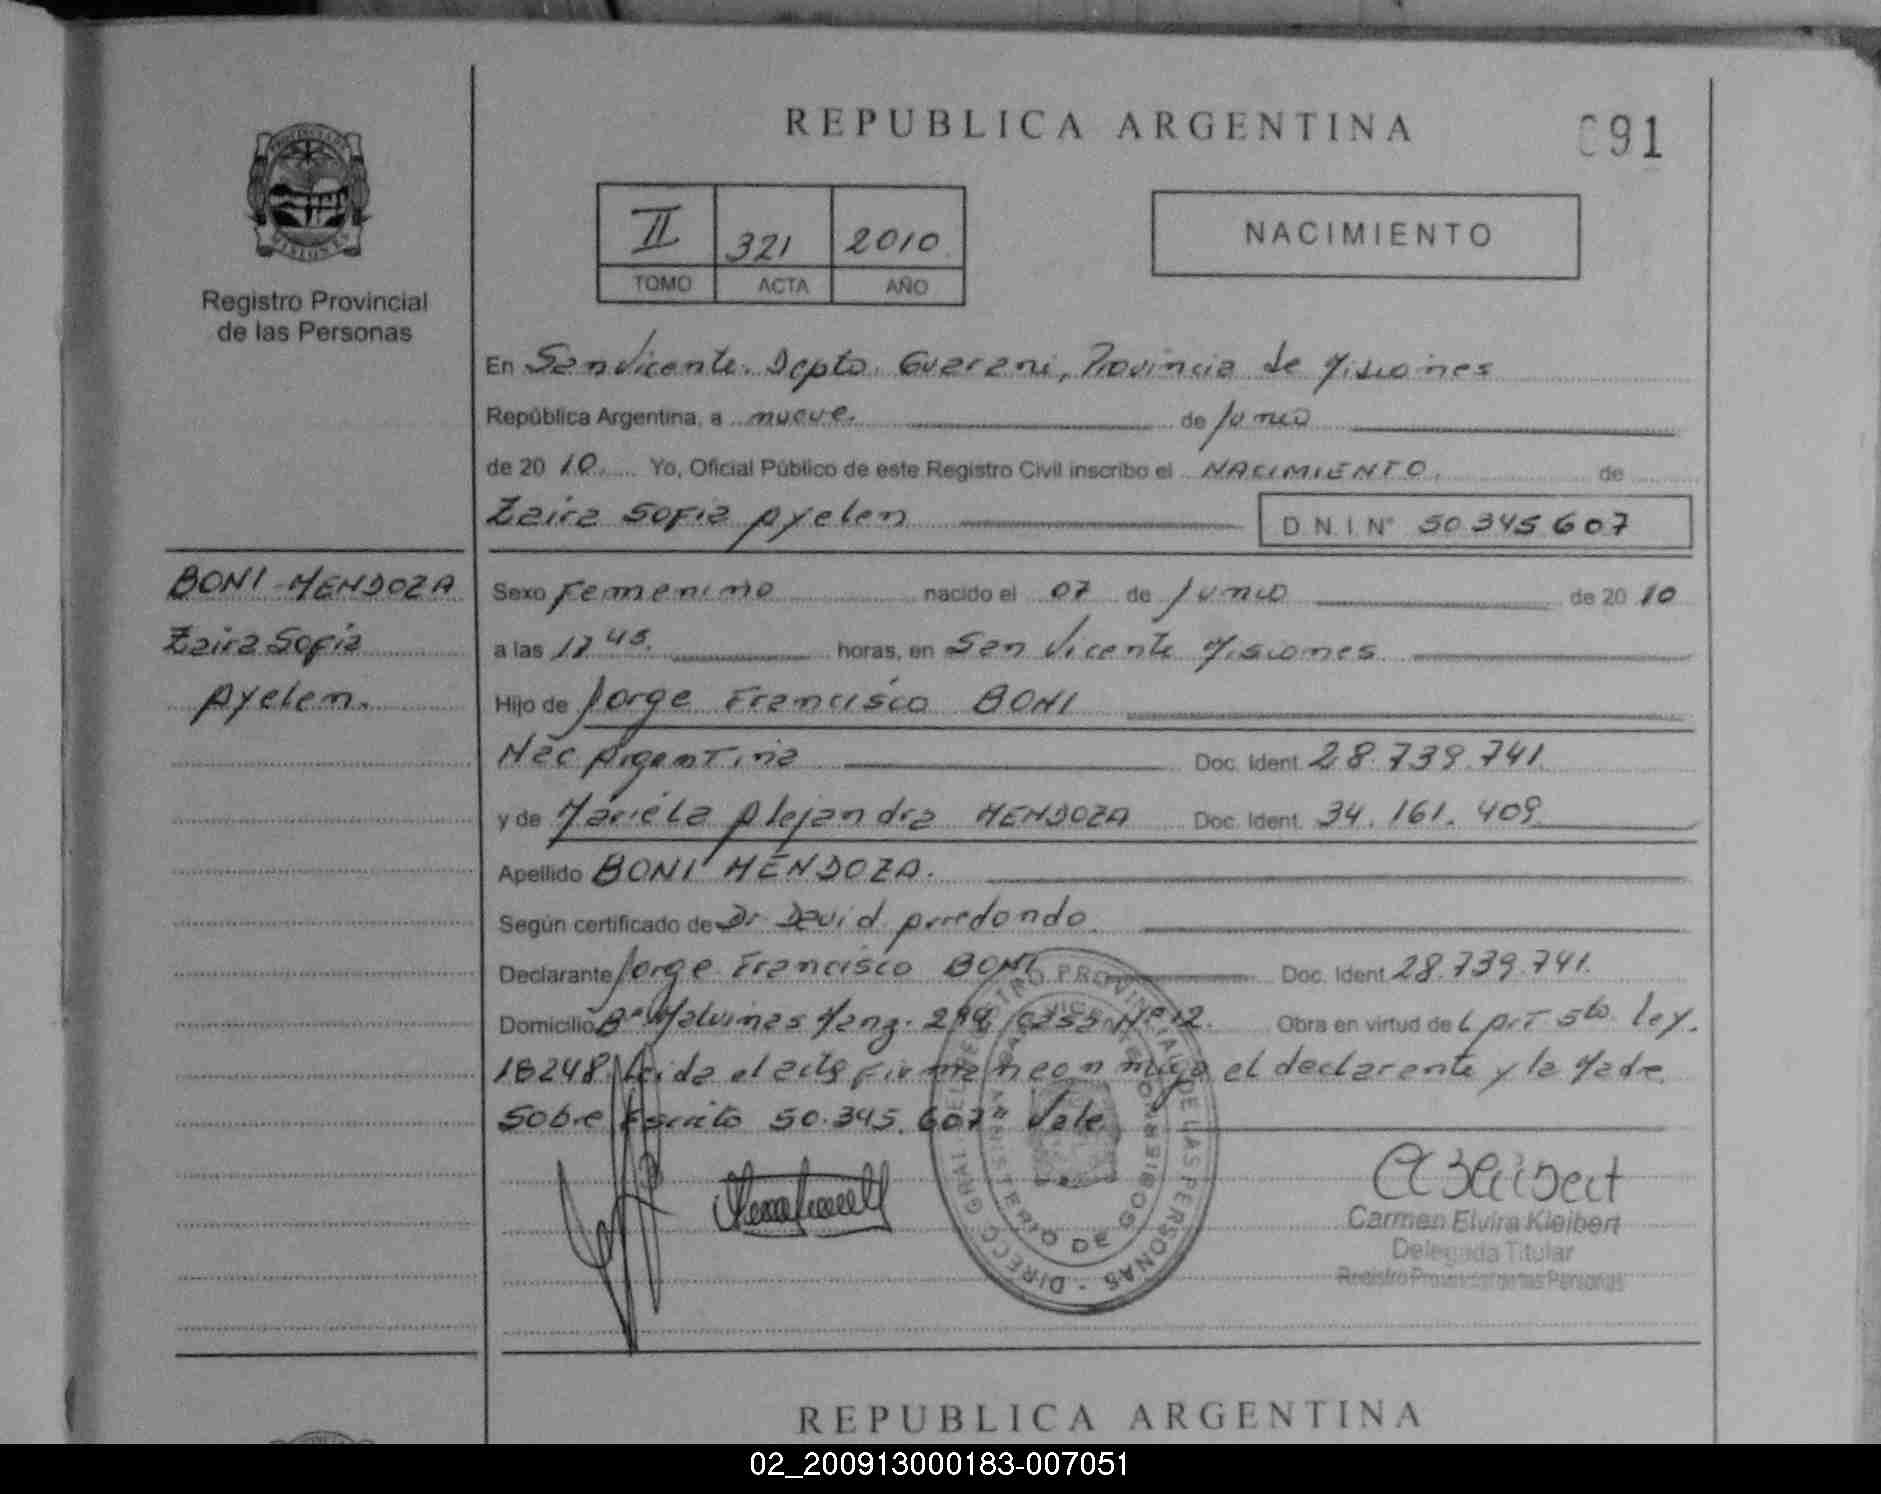 REPUBLICA ARGENTINA
091
PROVINCIA DE
MISIONES
Registro Provincial
de las Personas
II 321 2010
TOMO ACTA AÑO
NACIMIENTO
En San Vicente. Depto. Guarani, Provincia de Misiones
República Argentina, a nueve. de Junio
de 20 10. Yo, Oficial Público de este Registro Civil inscribo el NACIMIENTO. de
Zaira Sofia Ayelen D.N.I. N° 50.345.607
BONI MENDOZA
Zaira Sofia
Ayelen.
Sexo Femenino nacido el 07 de Junio de 20 10
a las 12 45. horas, en San Vicente Misiones
Hijo de Jorge Francisco BONI
Nac Argentina Doc. Ident. 28.739.741.
y de Mariela Alejandra MENDOZA Doc. Ident. 34.161.409
Apellido BONI MENDOZA.
Según certificado de Dr David Arredondo.
Declarante Jorge Francisco BONI Doc. Ident. 28.739.741.
Domicilio B° Malvinas Manz. casa N° 12. Obra en virtud de L Art 5to. ley.
18248. Leida el acta firman conmigo el declarante y la Madre
Sobre Escrito 50.345.607" Vale
DIRECC GRAL DEL REGISTRO PROVINCIAL DE LAS PERSONAS
MINISTERIO DE GOBIERNO
SAN VICENTE
Carmen Elvira Kleibert
Delegada Titular
Registro Provincial de las Personas
REPUBLICA ARGENTINA
02_200913000183-007051